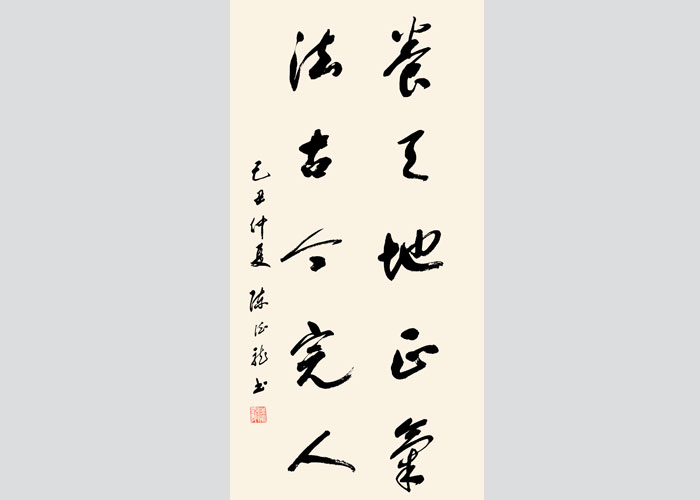 養天地正氣
法古今完人
己丑仲夏 陳德龍書